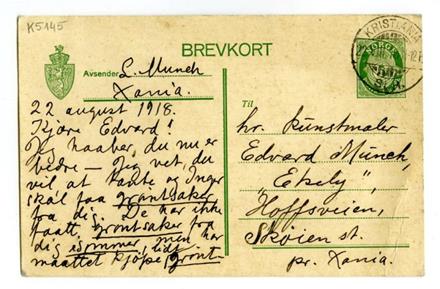 K5145
BREVKORT
KRISTIANIA
NORGE
Avsender
L. Munch
Xania.
22 august 1918.
Kjære Edvard!
Jeg haaber, du nu er
bedre — Jeg vet, du
vil at tante og Inger
skal faa grøntsaker
fra dig. De har ikke
faatt grøntsaker fra
dig isommer, men har
maattet kjøpe grønt-
Til
hr. kunstmaler
Edvard Munch,
"Ekely"
"Hoffsveien,
Skøien st.
pr. Xania.